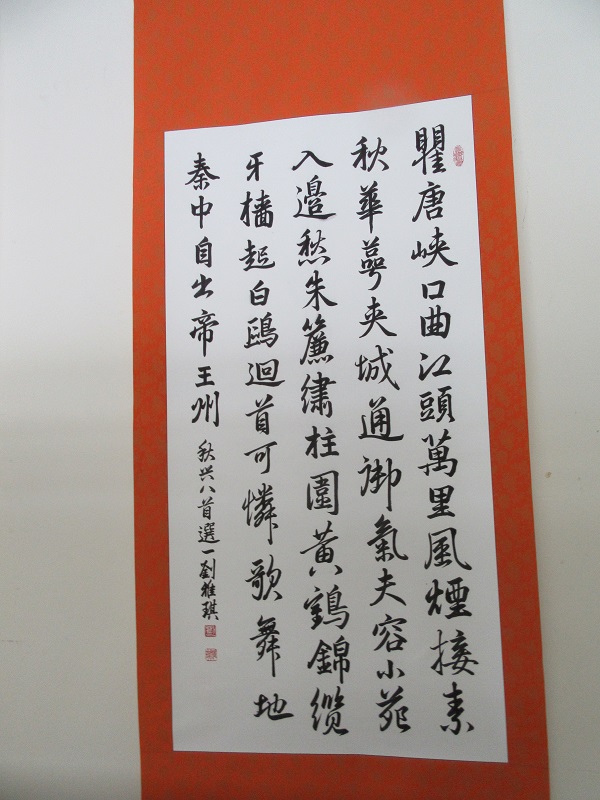 瞿唐峽口曲江頭萬里風煙接素
秋華萼夾城通御氣夫容小苑
入邊愁朱簾繡柱圍黃鶴錦纜
牙檣起白鷗迴首可憐歌舞地
秦中自出帝王州 秋兴八首選一劉維琪